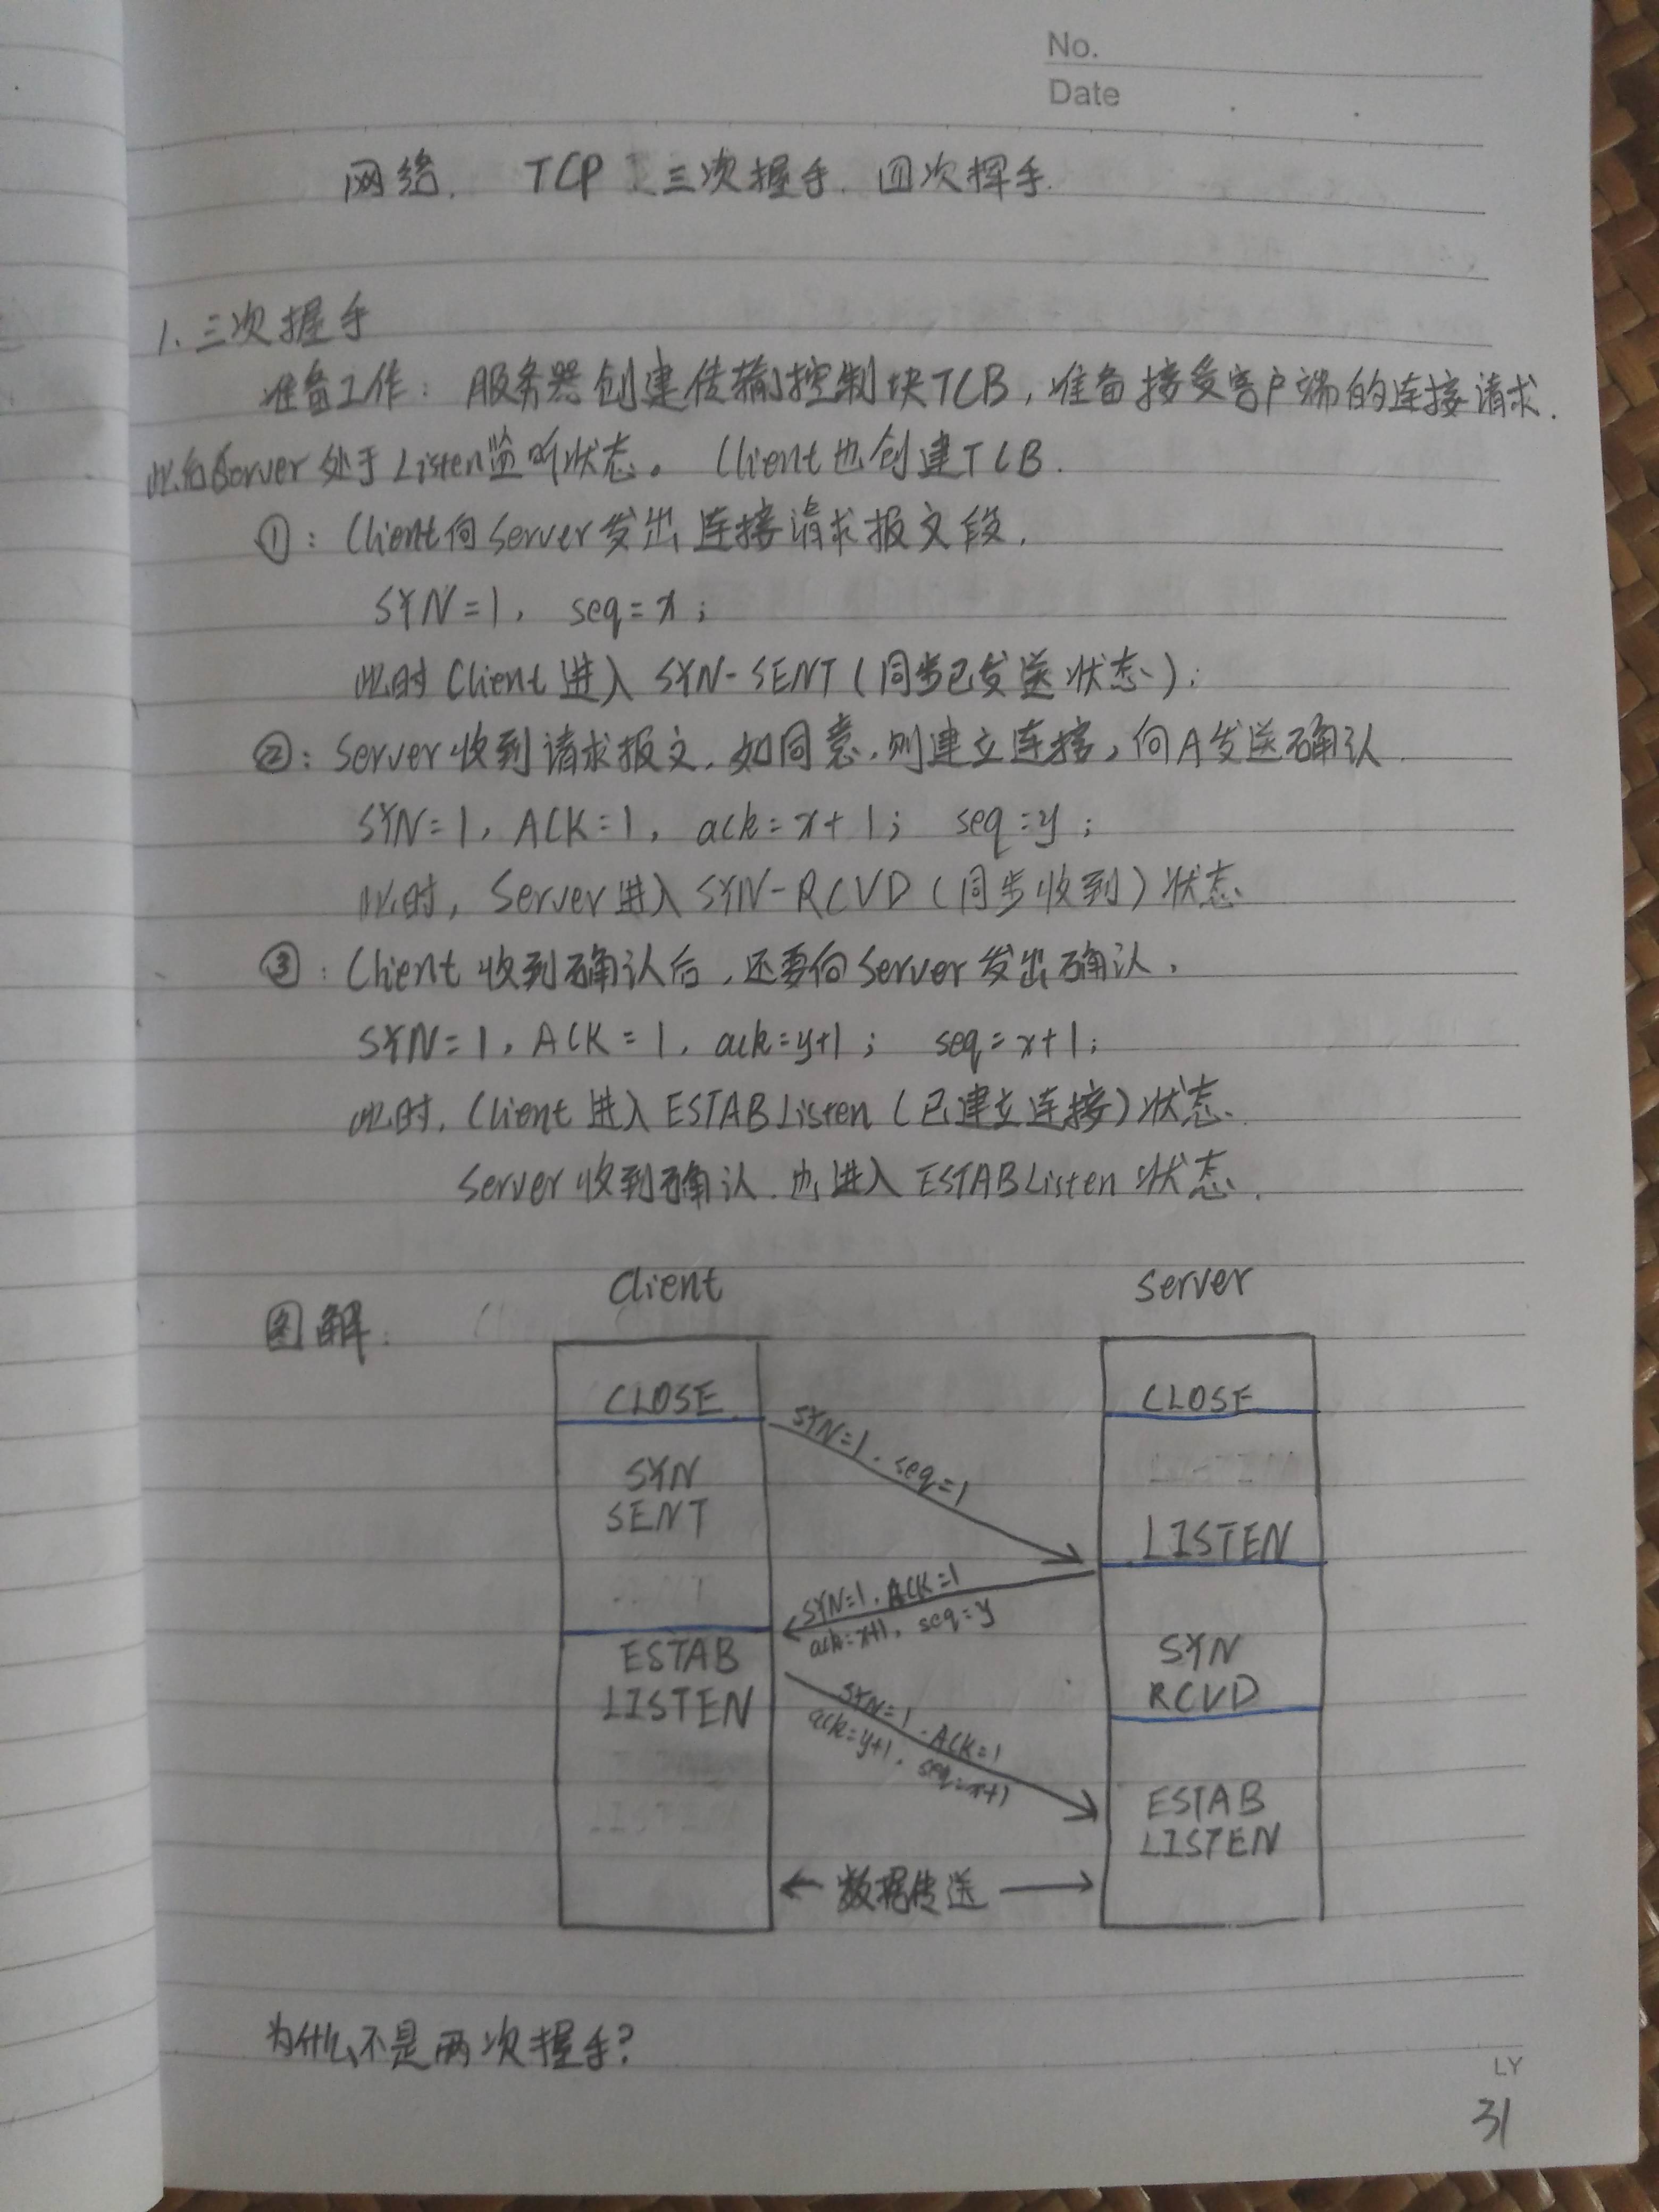 No.
Date
网络. TCP 三次握手. 四次挥手.
1. 三次握手
准备工作: 服务器创建传输控制块TCB, 准备接受客户端的连接请求.
此后Server处于Listen监听状态。 Client也创建TCB.
①: Client向Server发出连接请求报文段.
SYN=1, seq=x;
此时Client进入SYN-SENT(同步已发送状态);
②: Server收到请求报文, 如同意, 则建立连接, 向A发送确认.
SYN=1, ACK=1, ack=x+1; seq=y;
此时, Server进入SYN-RCVD(同步收到)状态
③: Client收到确认后, 还要向Server发出确认.
SYN=1, ACK=1, ack=y+1; seq=x+1;
此时, Client进入ESTABListen(已建立连接)状态.
Server收到确认. 也进入ESTABListen状态.
图解:
Client
Server
CLOSE
CLOSE
SYN=1, seq=1
SYN
SENT
LISTEN
SYN=1, ACK=1
ack=x+1, seq=y
ESTAB
LISTEN
SYN
RCVD
SYN=1, ACK=1
ack=y+1, seq=x+1
ESTAB
LISTEN
数据传送
为什么不是两次握手?
LY
31